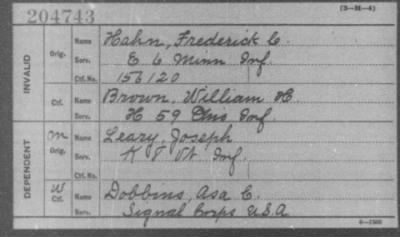 204743
(3-M-4)
INVALID
Orig. Name Hahn, Frederick C.
Serv. E 6 Minn Inf.
Ctf. No. 156120
Ctf. Name Brown, William H.
Serv. H 59 Ills Inf
DEPENDENT
M Orig. Name Leary, Joseph
Serv. K 8 Vt. Inf.
Ctf. No.
W Ctf. Name Dobbins, Asa C.
Serv. Signal Corps U.S.A